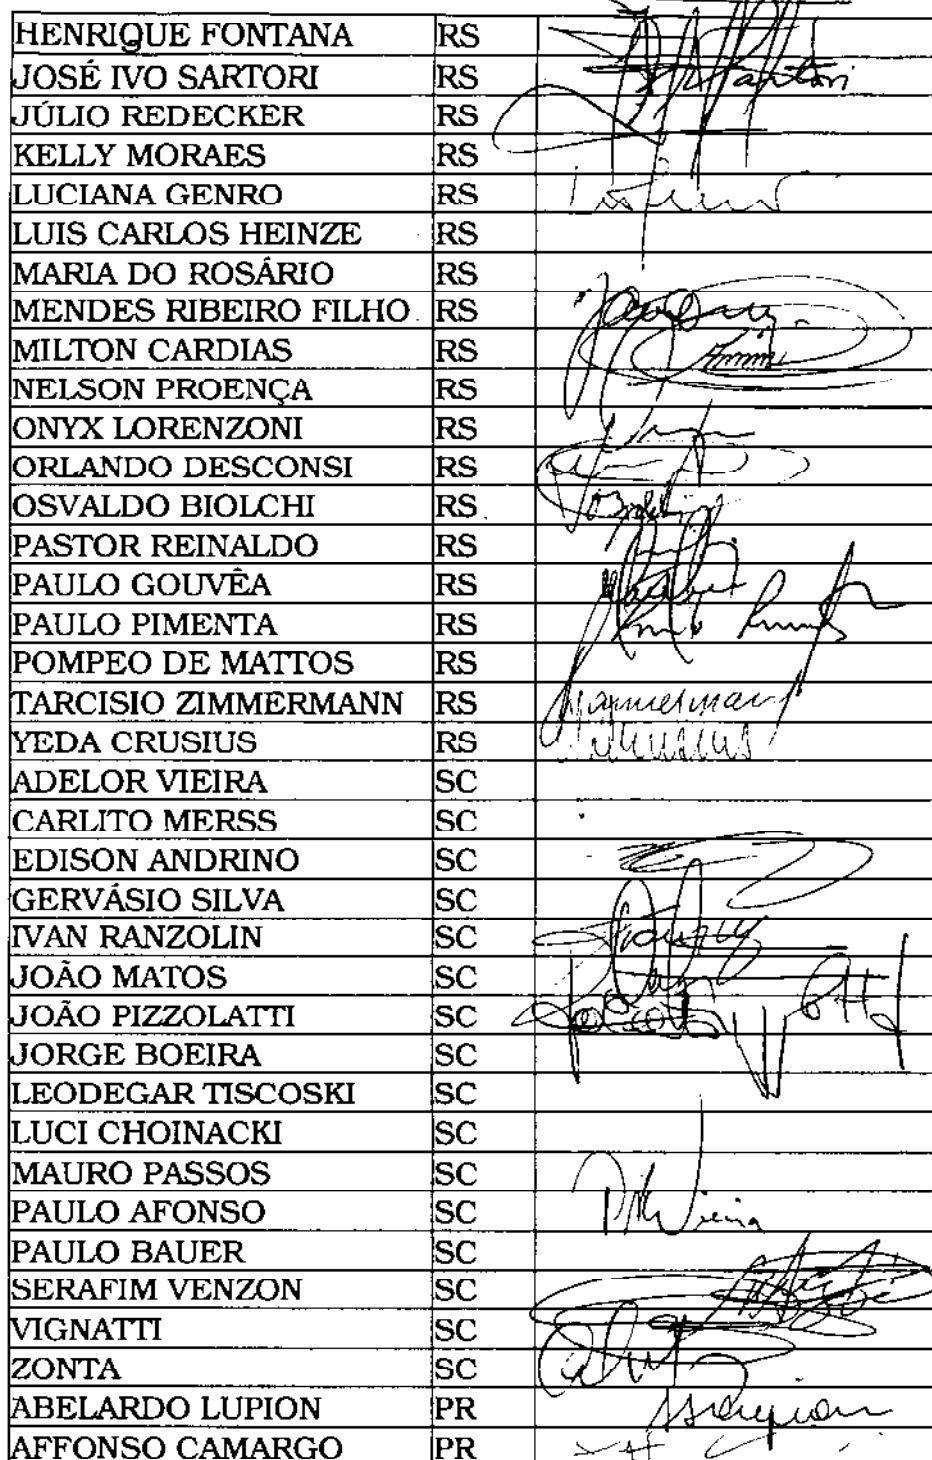 HENRIQUE FONTANA RS
JOSÉ IVO SARTORI RS Sartori
JÚLIO REDECKER RS
KELLY MORAES RS
LUCIANA GENRO RS
LUIS CARLOS HEINZE RS
MARIA DO ROSÁRIO RS
MENDES RIBEIRO FILHO RS
MILTON CARDIAS RS
NELSON PROENÇA RS
ONYX LORENZONI RS
ORLANDO DESCONSI RS
OSVALDO BIOLCHI RS
PASTOR REINALDO RS
PAULO GOUVÊA RS
PAULO PIMENTA RS
POMPEO DE MATTOS RS
TARCISIO ZIMMERMANN RS
YEDA CRUSIUS RS
ADELOR VIEIRA SC
CARLITO MERSS SC
EDISON ANDRINO SC
GERVÁSIO SILVA SC
IVAN RANZOLIN SC
JOÃO MATOS SC
JOÃO PIZZOLATTI SC
JORGE BOEIRA SC
LEODEGAR TISCOSKI SC
LUCI CHOINACKI SC
MAURO PASSOS SC
PAULO AFONSO SC Vieira
PAULO BAUER SC
SERAFIM VENZON SC
VIGNATTI SC
ZONTA SC
ABELARDO LUPION PR
AFFONSO CAMARGO PR